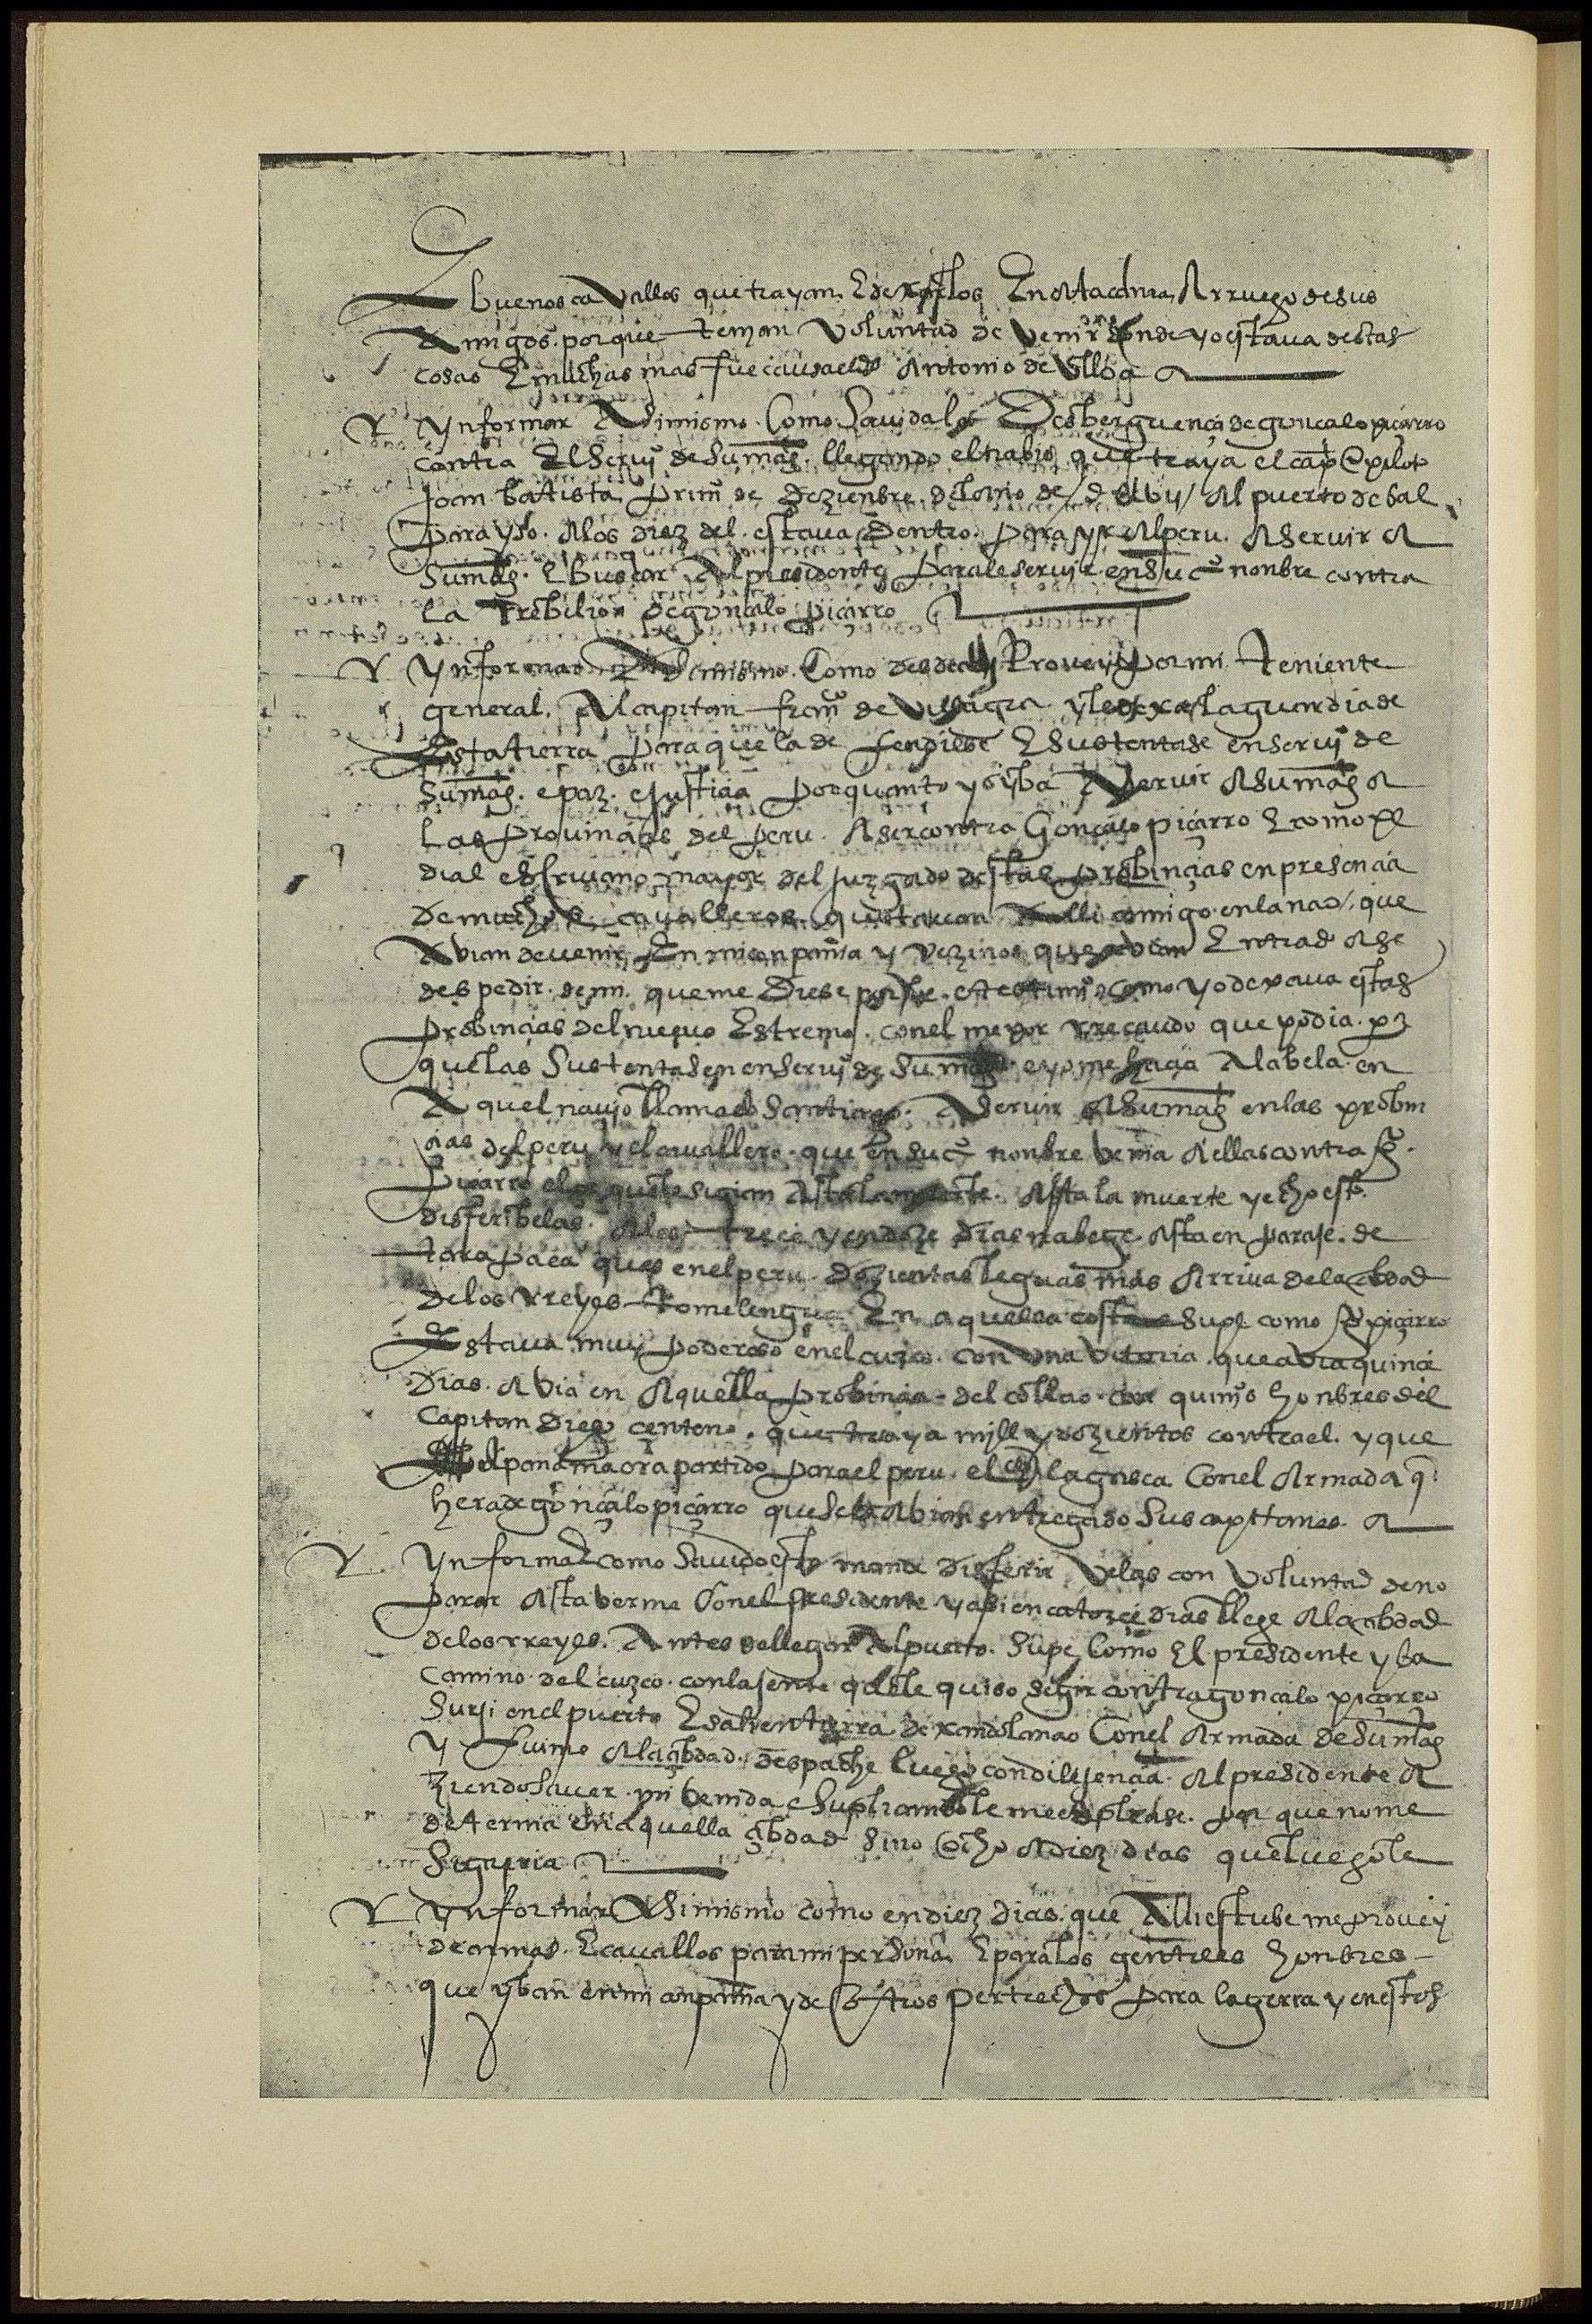 E buenos cavallos que trayan. E dexarlos En Atacama, A rruego de sus
Amigos. porque tenian voluntad de venir donde yo estava destas
cosas E muchas mas fue causa el Antonio de Ulloa
Ynformar Asimismo. Como savida la Desberguença de gonçalo piçarro
contra El servi° de su mag. llegando el nabio que traya el cap e piloto
Joan batista primº de dezienbre. del año de d xlvij Al puerto de bal
parayso. A los diez del. estava Dentro. para yr Al peru. A servir A
su mag. E buscar Al presidente para le servir en su c nonbre contra
la rrebelion de gonçalo piçarro
Ynformar Asimismo. Como desde alli Provey por mi teniente
general. Al capitan franco de villagra y le dexe la guardia de
Esta tierra para que la defendiese E sustentase en servi° de
su mag. e paz. e justicia por quanto yo yba A servir A su mag A
las provincias del peru. A ser contra Gonçalo piçarro E como pedi
al escrivano mayor del juzgado destas probincias en presencia
de muchos cavalleros questavan Alli comigo en la nao que
Avian de venir En mi conpania y vezinos que avian Entrad A se
despedir. de mi. que me Diese por fe. e testimº como yo dexava estas
probincias del nuevo Estremo. con el mejor rrecaudo que podia. pª
que las sustentasen en servi° de su mag e yo me hazia A la bela en
Aquel navio llamado santiago. A servir A su mag en las probin
cias del peru y el cavallero. que En su c nonbre benia A ellas contra gº
piçarro e los que le seguian Asta la muerte y echo esto
disferi belas. A los treze y en doze dias nabege Asta en paraje. de
tarapaca ques en el peru. dozientas leguas mas Arriva de la cibdad
de los rreyes tome lengua En aquella costa supe como gº piçarro
Estava muy poderoso en el cuzco. con una vitoria que avia quinze
dias. Abia en Aquella probincia del collao con quiniºs honbres del
capitan diego centeno. que traya mill y dozientos contra el. y que
de panama era partido para el peru. el lde la gasca Con el Armada q
hera de gonçalo piçarro que se la Abian entregado sus capitanes.
Ynformar como savido esto mande disferir velas con voluntad de no
parar Asta verme Con el presidente y asi en catorze dias llege A la cibdad
de los rreyes. Antes de llegar Al puerto. supe Como El presidente yba
camino del cuzco. con la jente q le quiso seguir contra gonçalo piçarro
surji en el puerto E salte en tierra dexando la nao Con el Armada de su mag
y fuime A la cibdad. despache luego con dilijencia. Al presidente A
ziendo saver mi benida e suplicandole me esperase. por que no me
deternia en aquella cibdad sino ocho A diez dias que luego le
seguiria
Ynformar Asimismo como en diez dias. que Alli estube me provey
de armas. E cavallos para mi persona. E para los gentiles honbres
que yban en mi conpania y de otros pertrechos para la gerra y en estos